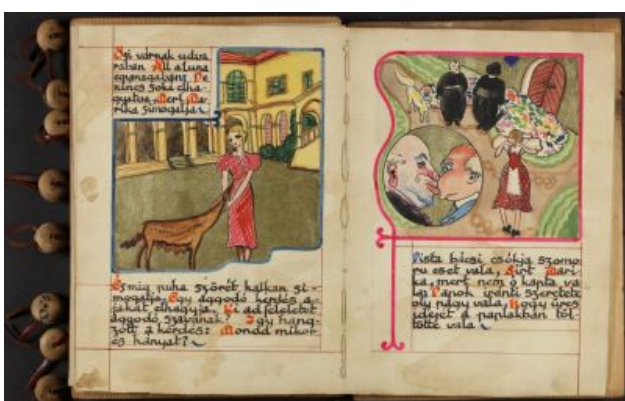 Ősi várnak udva
rában Áll a tuna
egymagában. De
nincs soká elha-
gyatva, Mert Ma-
rika simogatja
És míg puha szőrét halkan si-
mogatja, Egy aggódó kérdés a-
jakát elhagyja. Ki ad feleletet
aggódó szavának? Így hang-
zott a kérdés: Mondd mikor
és hányat?
Pista bácsi csókja szomo-
rú eset vala, Sírt Mari-
ka, mert nem ő kapta va-
la, Papok iránti szeretete
oly nagy vala, Hogy üres
idejét a paplakban töl-
tötte vala